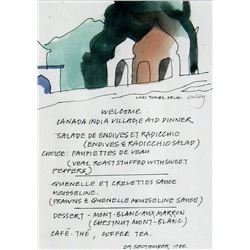 LODI TOMBS, DELHI.
WELCOME
CANADA INDIA VILLAGE AID DINNER
SALADE DE ENDIVES ET RADICCHIO
(ENDIVES & RADICCHIO SALAD)
CHOICE: PAUPIETTES DE VEAU
(VEAL ROAST STUFFED WITH SWEET
PEPPERS)
QUENELLE ET CREVETTES SAUCE
MOUSSELINE.
(PRAWNS & QUENELLE MOUSSELINE SAUCE)
DESSERT - MONT-BLANC AUX MARRON
(CHESTNUT MONT-BLANC)
CAFÉ-THÉ, COFFEE TEA.
SEPTEMBER, 1988.